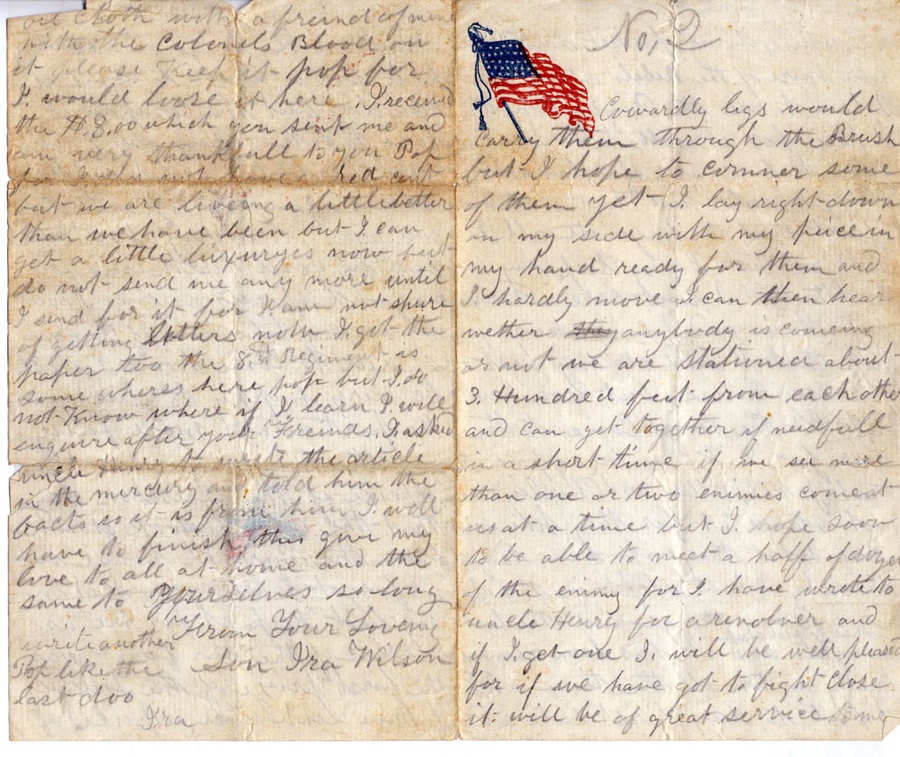 oil cloth with a freind of mine
with the Colonels Blood on
it please Keep it pop for
I. would loose it here. I. received
the $8.00 which you sent me and
am very thankfull to you Pop
for I did not have a red cent
but we are liveing a little better
than we have been but I can
get a little luxuryes now but
do not send me any more until
I send for it for I am not shure
of getting letters now I. got the
paper too the 8th Regiment is
some wheres here pop but I do
not Know where if I learn I will
enquire after your Freinds. I. asked
uncle Henry to the article
in the mercury and told him the
facts so it is from him I. will
have to finish this give my
love to all at home and the
same to Yourselves so long
From Your Loveing
Son Ira Wilson
write another
Pop like the
last doo
Ira
No, 2
Cowardly legs would
carry them through the Brush
but I hope to cornner some
of them yet I lay right down
on my side with my peice in
my hand ready for them and
I hardly move I can then hear
wether they anybody is comeing
or not we are stationed about
3. Hundred feet from each other
and can get together if needfull
in a short time if we see more
than one or two enimies come at
us at a time but I. hope soon
to be able to meet a haff of dozen
of the enimy for I. have wrote to
uncle Henry for a revolver and
if I. get one I. will be well pleased
for if we have got to fight close
it will be of great service to me